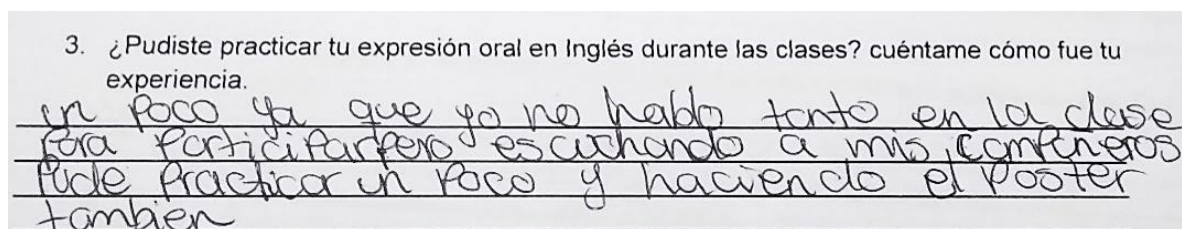 3. ¿Pudiste practicar tu expresión oral en Inglés durante las clases? cuéntame cómo fue tu
experiencia.
un poco ya que yo no hablo tanto en la clase
para participar pero escuchando a mis compañeros
pude practicar un poco y haciendo el poster
tambien